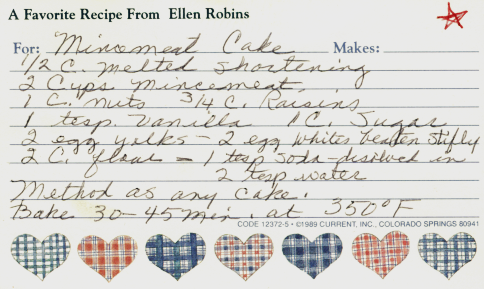 A Favorite Recipe From Ellen Robins
For: Mincemeat Cake Makes:
1/2 C. melted shortening
2 Cups mincemeat,
1 C. nuts 3/4 C. Raisins
1 tesp. Vanilla 1 C. Sugar
2 egg yolks - 2 egg whites beaten stifly
2 C. flour - 1 tesp soda - disolved in
2 tesp water
Method as any cake.
Bake 30-45 min. at 350°F
CODE 12372-5 • ©1989 CURRENT, INC., COLORADO SPRINGS 80941